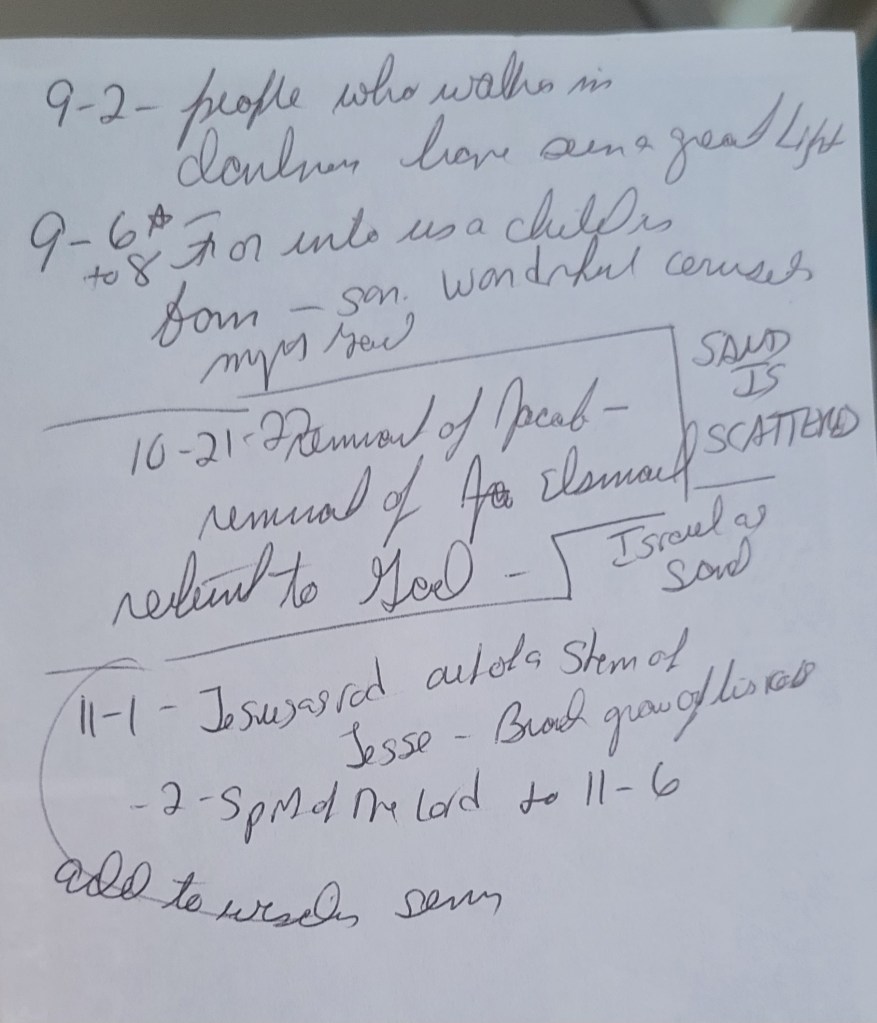 9-2- people who walks in
darkness have seen a great Light
9-6☆ For unto us a child is
to 8
born - son. Wonderful
10-21-22 of Jacob -
of
SAND
IS
SCATTERED
to God -
Israel as
Sand
11-1 - Jesus as rod out of a Stem of
Jesse - Branch grow of his
-2- Spirit of the Lord to 11-6
add to